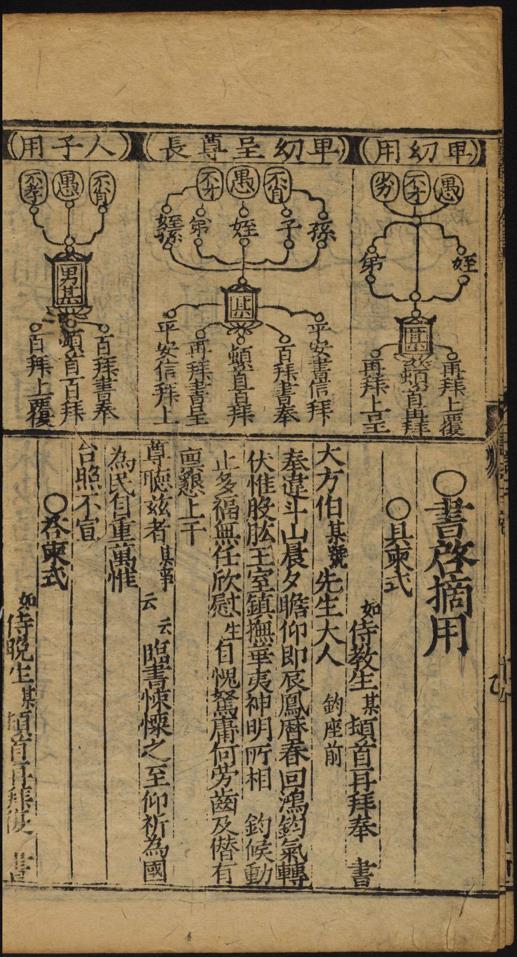 卑幼用
愚
不才
劣
姪
弟
某
再拜上覆
頓首再拜
再拜上呈
卑幼呈尊長
不肖
愚
不才
孫
子
姪
弟
姪孫
某
平安書信拜
百拜書奉
頓首百拜
再拜書呈
平安信拜上
人子用
不肖
愚
不孝
男某
百拜書奉
頓首百拜
百拜上覆
○書啓摘用
○具柬式
如侍教生某頓首再拜奉 書
大方伯某號先生大人 鈞座前
奉違斗山晨夕瞻仰即辰鳳曆春回鴻鈞氣轉
伏惟股肱王室鎮撫華夷神明所相 鈞候動
止多福無任欣慰生自愧駑庸何勞齒及僭有
稟懇上干
尊聽兹者某事云云臨書悚慄之至仰祈為國
為民自重萬惟
台照不宣
○答柬式
如侍晩生某頓首再拜復 書